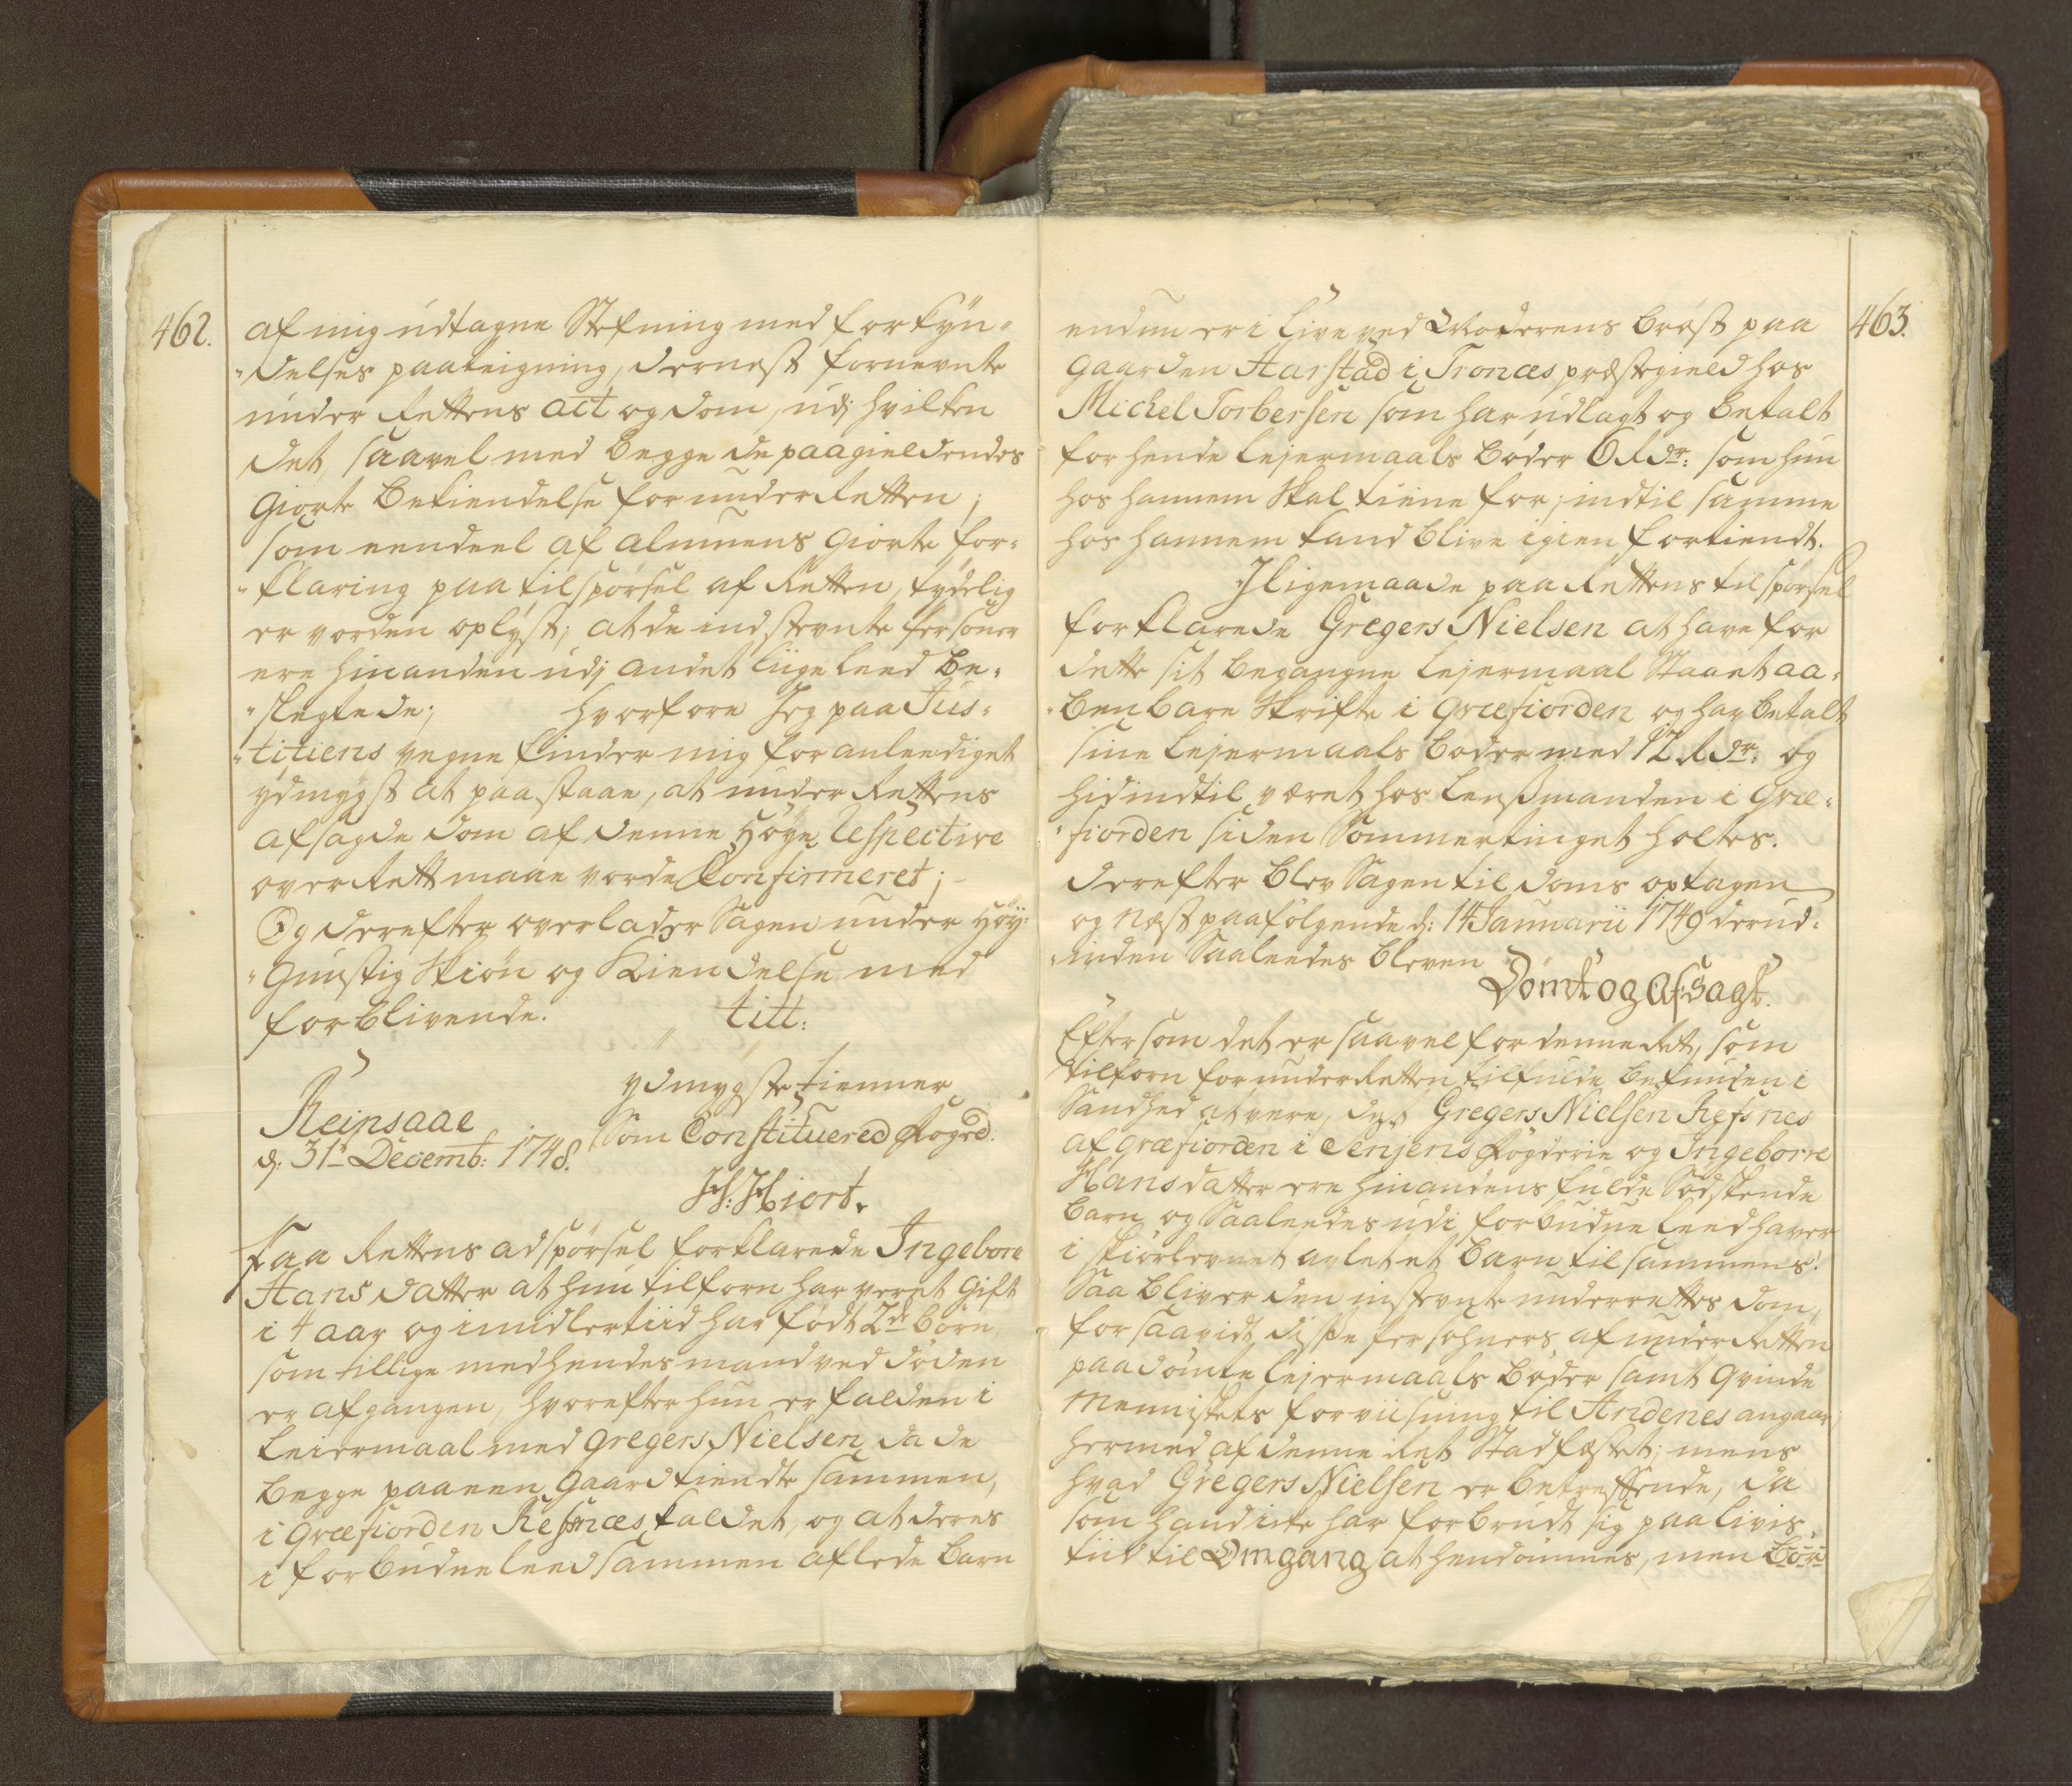 462.
af mig udtagne Stefning med forkÿn-
"delses paateigning, dernest fornevnte
under Rettens act og dom, udj hvilken
det, saavel med begge de paagieldendes
giorte bekiendelse for under Retten;
som eendeel af almuens giorte for-
"klaring paa tilspørsel af Retten, tydelig
er vorden oplÿst; at de indstevnte Personer
ere hinanden udj andet liige Leed be-
"slegtede; hvorfore Jeg paa Jus-
"titiens vegne finder mig foranlediget
ydmygst at paastaae, at under Rettens
afsagde dom af denne Høÿe Respective
over Rett maae vorde Confirmeret;
Og derefter overlader Sagen under Høÿ-
"gunstig Skiøn og Kiendelse med
forblivende. titt:
ydmygste tienner
Reinsaae Som Constituered Foged.
d: 31te Decemb: 1748.
H: Hiort.
Paa Rettens adspørsel forklarede Ingebore
Hans datter at hun tilforn har veret gift
i 4 aar og imidlertiid har født 2de børn,
som tillige med hendes mand ved døden
er afgangen, hvorefter hun er falden i
Leiermaal med Gregers Nielsen, da de
begge paa een gaard tiendte sammen,
i Græfiorden Refsnæs kaldet, og at deres
i forbudne leed sammen aflede barn
463.
endnu er i Live ved Moderens brøst paa
gaarden Aarstad i Tronæs præstegield hos
Michel Torbersen som har udlagt og betalt
for hende Lejermaals bøder 6 Rdr: som hun
hos hannem skal tiene for, indtil samme
hos hannem kand blive igien fortiendt.
Jligemaade paa Rettens tilspørsel
forklarede Gregers Nielsen at have for
dette sit begangne Lejermaal Staaet aa-
"benbare Skrifte i Græfiorden og har betalt
sine Lejermaals bøder med 12 Rdr: og
hidindtil været hos Lensmanden i Græ-
"fiorden siden Sommertinget holtes.
derefter blev Sagen til doms optagen
og næst paafølgende d: 14 Januarii 1749 derud-
"inden Saaleedes bleven
Dømt og Afsagt.
Eftersom det er saavel for denne Ret, som
tilforn for under Retten tilfulde befunden i
Sandhed at vere, det Gregers Nielsen Refsnes
af Græfiorden i Senjens Fogderie og Ingeborre
Hansdatter ere hinandens fulde Sødskende
barn og Saaleedes udi forbudne Leed haver
i skiørlevnet avlet et barn tilsammens!
Saa bliver den instevnte underrettes dom,
forsaavidt disse Persohners af under Retten
paadømte Lejermaals bøder samt qvinde
menniskets forviisning til Andenes angaar;
hermed af denne Ret Stadfæstet; mens
hvad Gregers Nielsen er betreffende, da
som hand icke har forbrudt sig paa Livis
tiid til Omgang at hendømmes, men bør